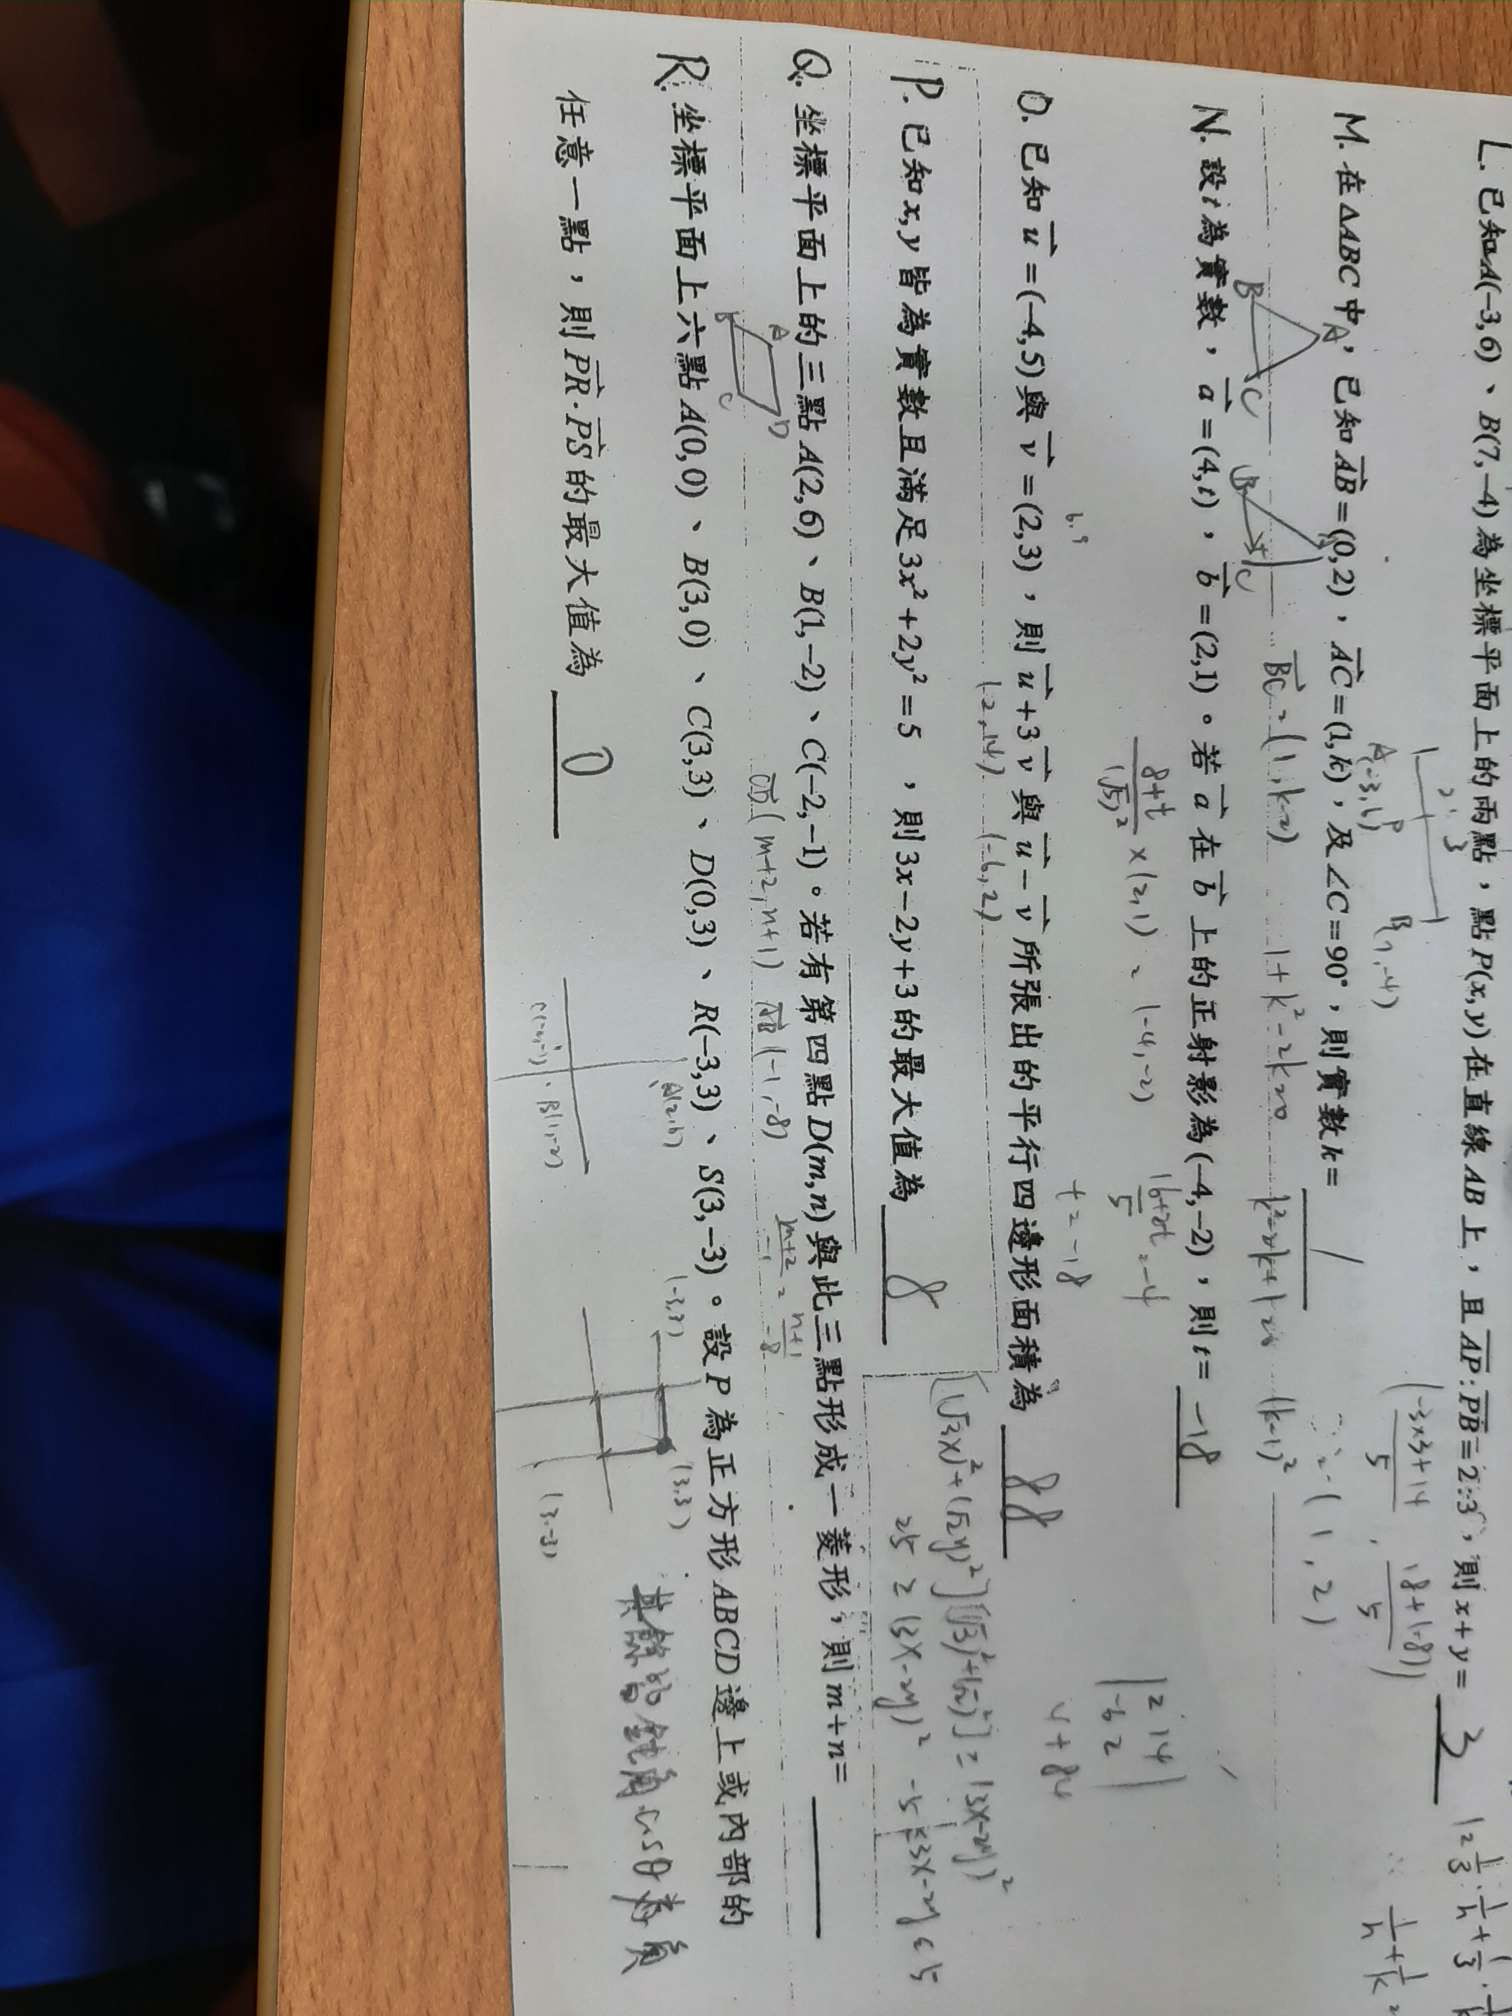 L. 已知A(-3,6)、B(7,-4)為坐標平面上的兩點，點P(x,y)在直線AB上，且AP:PB=2:3，則x+y= 3
2 : 3
A(-3,6) P B(7,-4)
(-3×3+14/5 , 18+(-8)/5)
M. 在△ABC中，已知AB=(0,2)，AC=(1,k)，及∠C=90°，則實數k= 1
A B C
BC=(1,k-2) 1+k²-2k=0 k²-2k+1=0 (k-1)²
N. 設t為實數，a=(4,t)，b=(2,1)。若a在b上的正射影為(-4,-2)，則t= -18
8+t/(√5)² ×(2,1) = (-4,-2) 16+2t/5 = -4
t=-18
O. 已知u=(-4,5)與v=(2,3)，則u+3v與u-v所張出的平行四邊形面積為 88
6,9
(2,14) (-6,2)
|2 14|
|-6 2|
4+84
P. 已知x,y皆為實數且滿足3x²+2y²=5，則3x-2y+3的最大值為 8
[(√3x)²+(√2y)²][(√3)²+(-√2)²]≥(3x-2y)²
25 ≥ (3x-2y)² -5≤3x-2y≤5
Q. 坐標平面上的三點A(2,6)、B(1,-2)、C(-2,-1)。若有第四點D(m,n)與此三點形成一菱形，則m+n=
A B C D
CD(m+2,n+1) AB(-1,-8) m+2/-1 = n+1/-8
R. 坐標平面上六點A(0,0)、B(3,0)、C(3,3)、D(0,3)、R(-3,3)、S(3,-3)。設P為正方形ABCD邊上或內部的
任意一點，則PR·PS的最大值為 0
A(2,6)
C(-2,-1) B(1,-2)
(-3,3) (3,3)
(3,-3)
其餘的鈍角cosθ為負